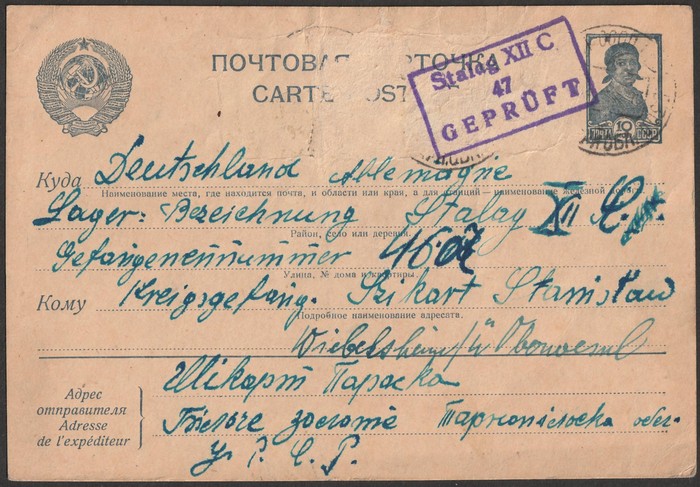 ПОЧТОВАЯ КАРТОЧКА
CARTE POSTALE
Stalag XII C
47
GEPRÜFT
ПОЧТА 10 СССР
Куда Deutschland Allemagne
Наименование места, где находится почта, и области или края, а для станций — наименование железной дороги
Lager: Bezeichnung Stalag XII
Район, село или деревня.
Gefangenennummer 4607
Улица, № дома и квартиры.
Кому Kreigsgefang. Szikart Stanisław
Подробное наименование адресата.
Wiebelsheim / ü Oberwesel
Адрес
отправителя
Adresse
de l'expéditeur
Шікарт Параска
Більче золоте Тарнопільска обл.
У. Р. С. Р.